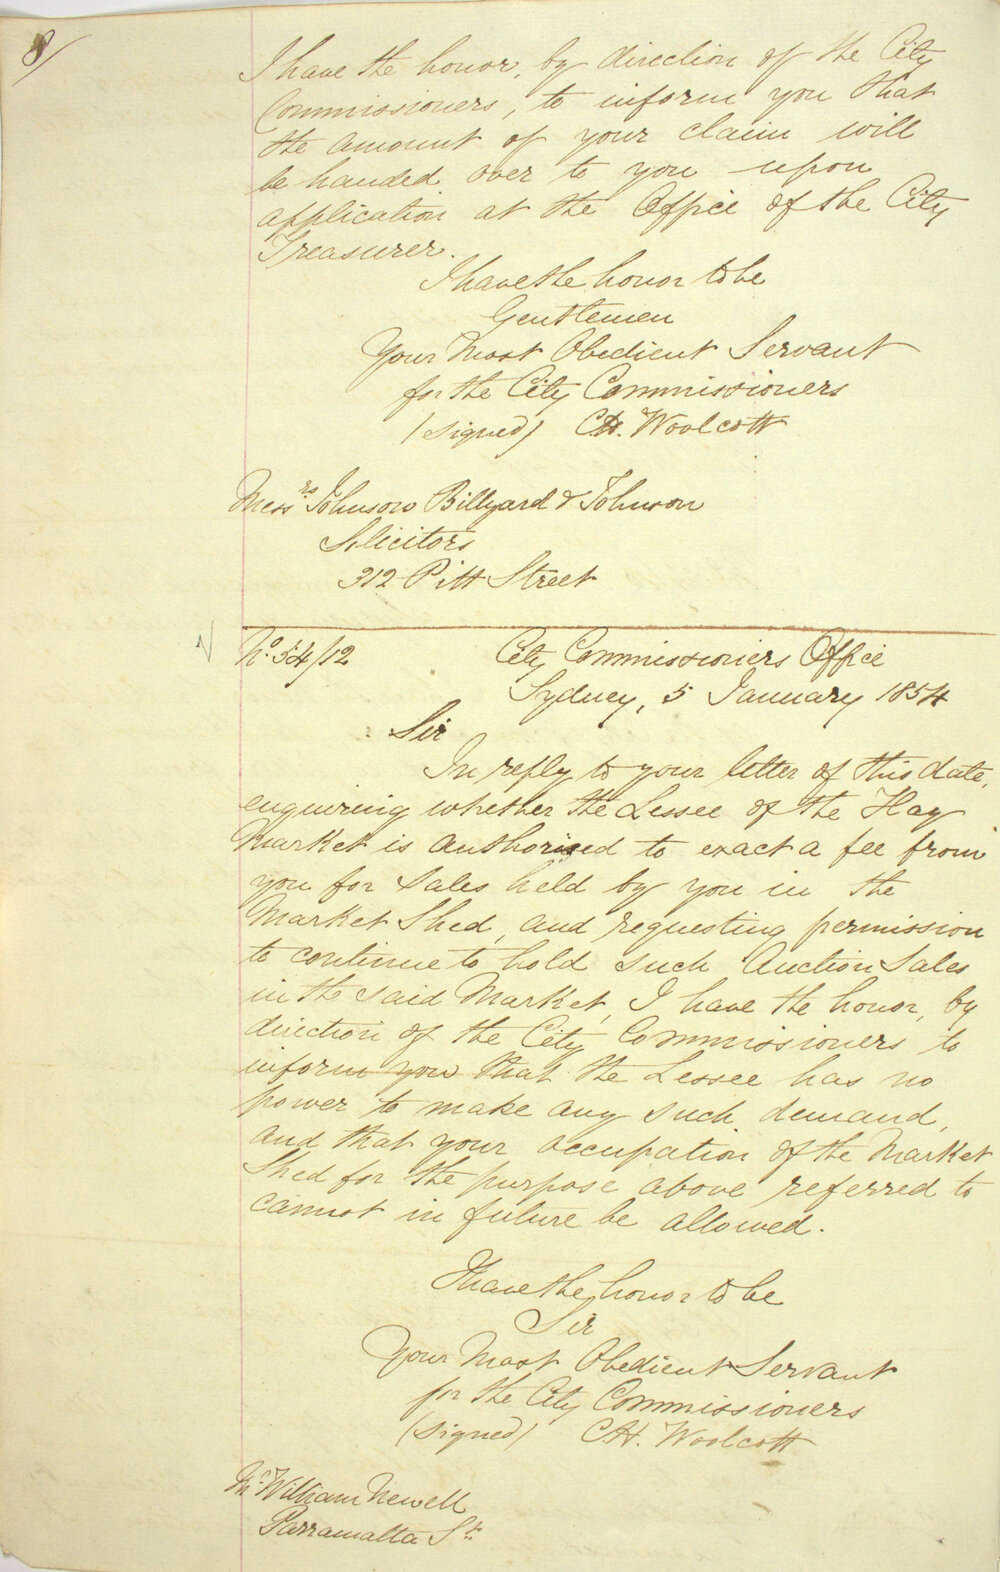 8/
I have the honor, by direction of the City
Commissioners, to inform you that
the amount of your claim will
be handed over to you upon
application at the Office of the City
Treasurer.
I have the honor to be
Gentlemen
Your Most Obedient Servant
for the City Commissioners
(signed) C.H. Woolcott
Messrs Johnson Billyard & Johnson
Solicitors
312 Pitt Street
No. 54/12 City Commissioners Office
Sydney, 5 January 1854
Sir
In reply to your letter of this date,
enquiring whether the Lessee of the Hay
Market is authorised to exact a fee from
you for sales held by you in the
Market Shed, and requesting permission
to continue to hold such Auction Sales
in the said Market, I have the honor, by
direction of the City Commissioners to
inform you that the Lessee has no
power to make any such demand,
and that your occupation of the Market
Shed for the purpose above referred to
cannot in future be allowed.
I have the honor to be
Sir
Your Most Obedient Servant
for the City Commissioners
(signed) C.H. Woolcott
Mr. William Newell
Parramatta St.